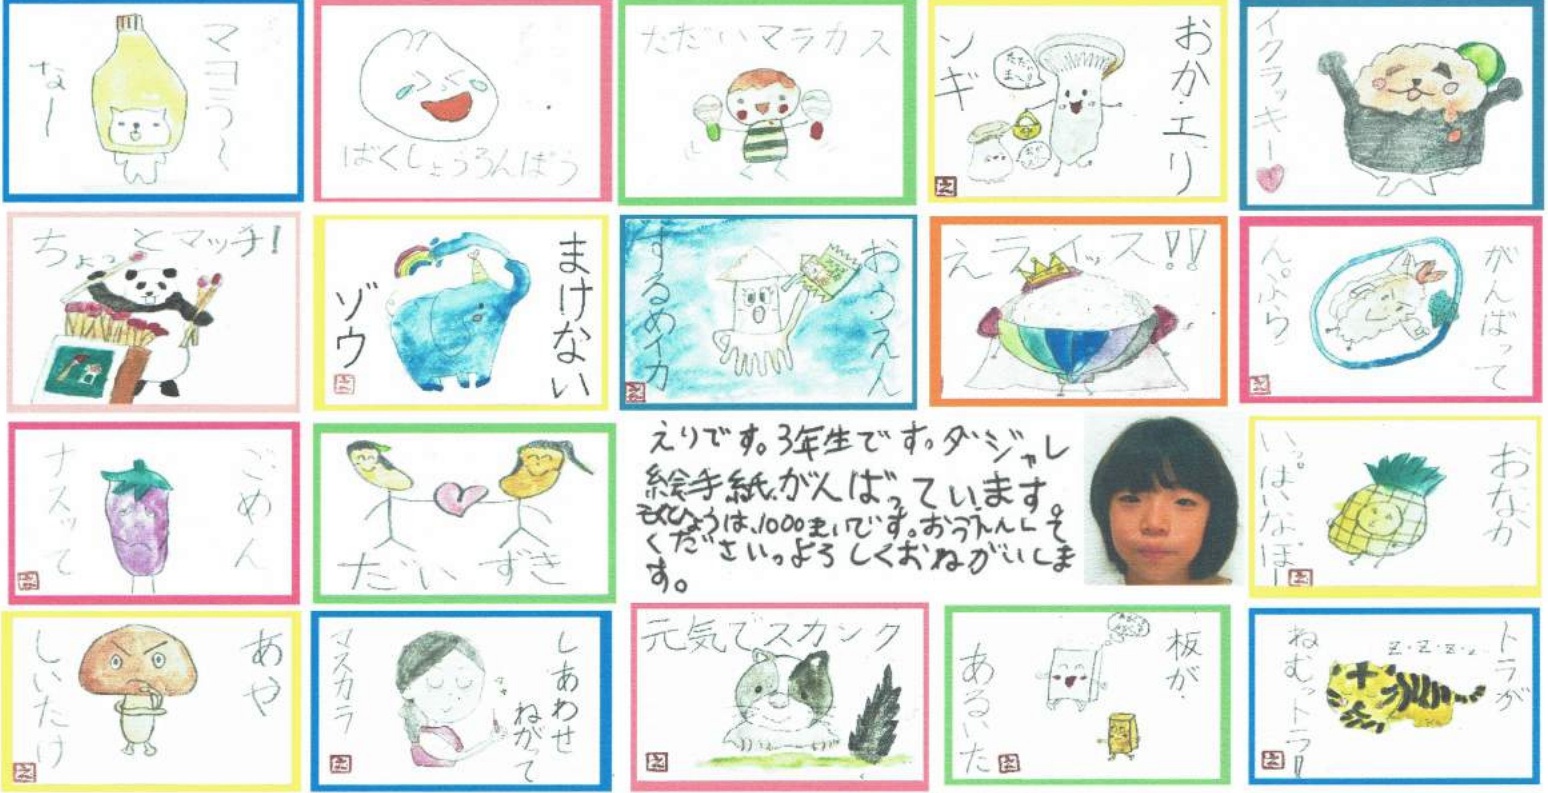 マヨう〜
なー
ばくしょうろんぱう
ただいマラカス
おか・エリ
ンギ
ただい
ま〜!!
イクラッキー♥
ちょっとマッチ!
まけない
ゾウ
おうえん
するめイカ
えライッス!!
がんばって
んぷら
ごめん
ナスッて
だいずき
えりです。3年生です。ダジャレ
絵手紙がんばっています。
もくひょうは、1000まいです。おうえんして
くださいっよろしくおねがいしま
す。
おなか
いっぱいなぽー
あや
しいたけ
しあわせ
ねがって
マスカラ
元気でスカンク
板が、
あるいた
トラが
ねむットラ!!
z・z・z・z..
え